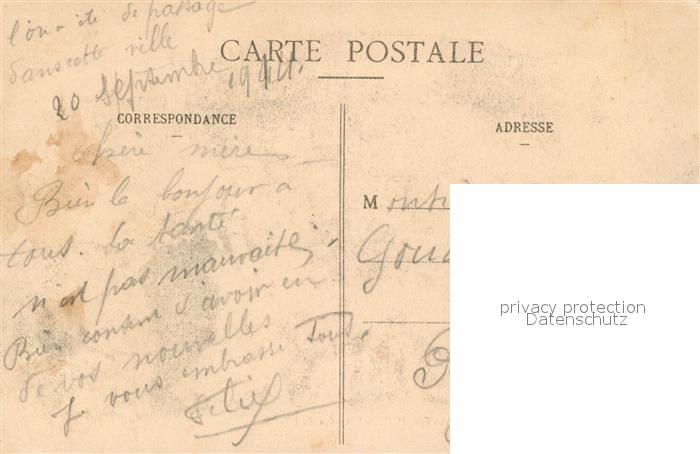 l'on a été de passage
dans cette ville
CARTE POSTALE
20 septembre 1914.
CORRESPONDANCE
ADRESSE
chère mère
Bien le bonjour a
tous. La santé
n'est pas mauvaise
Bien content d'avoir eu
de vos nouvelles
Je vous embrasse Tous.
Félix
M
Gou
privacy protection
Datenschutz